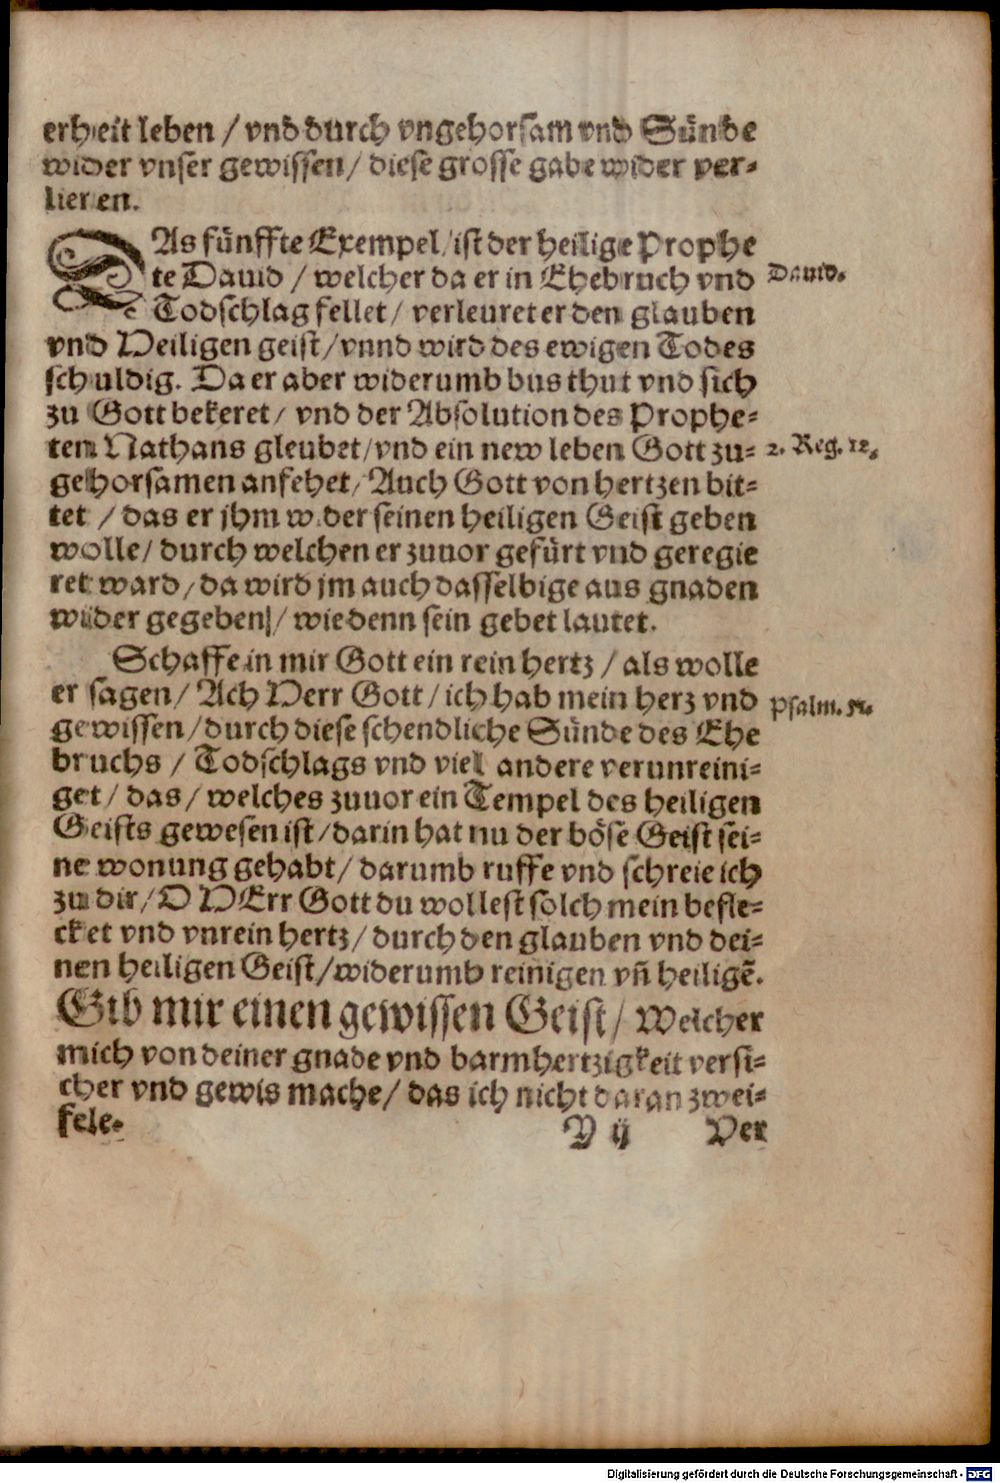 erheit leben / vnd durch vngehorsam vnd Sünde
wider vnser gewissen / diese grosse gabe wider ver=
lieren.
DAs fünffte Exempel / ist der heilige Prophe
te Dauid / welcher da er in Ehebruch vnd
Dauid.
Todschlag fellet / verleuret er den glauben
vnd Heiligen geist / vnnd wird des ewigen Todes
schuldig. Da er aber widerumb bus thut vnd sich
zu Gott bekeret / vnd der Absolution des Prophe=
ten Nathans gleubet / vnd ein new leben Gott zu=
2. Reg. 12.
gehorsamen anfehet / Auch Gott von hertzen bit=
tet / das er jhm wider seinen heiligen Geist geben
wolle / durch welchen er zuuor gefürt vnd geregie
ret ward / da wird jm auch dasselbige aus gnaden
wider gegeben / wie denn sein gebet lautet.
Schaffe in mir Gott ein rein hertz / als wolle
er sagen / Ach Herr Gott / ich hab mein herz vnd
Psalm. 51.
gewissen / durch diese schendliche Sünde des Ehe
bruchs / Todschlags vnd viel andere verunreini=
get / das / welches zuuor ein Tempel des heiligen
Geists gewesen ist / darin hat nu der böse Geist sei=
ne wonung gehabt / darumb ruffe vnd schreie ich
zu dir / O HErr Gott du wollest solch mein befle=
cket vnd vnrein hertz / durch den glauben vnd dei=
nen heiligen Geist / widerumb reinigen vñ heiligẽ.
Gib mir einen gewissen Geist / Welcher
mich von deiner gnade vnd barmhertzigkeit versi=
cher vnd gewis mache / das ich nicht daran zwei=
fele.
H ij Ver
Digitalisierung gefördert durch die Deutsche Forschungsgemeinschaft - DFG